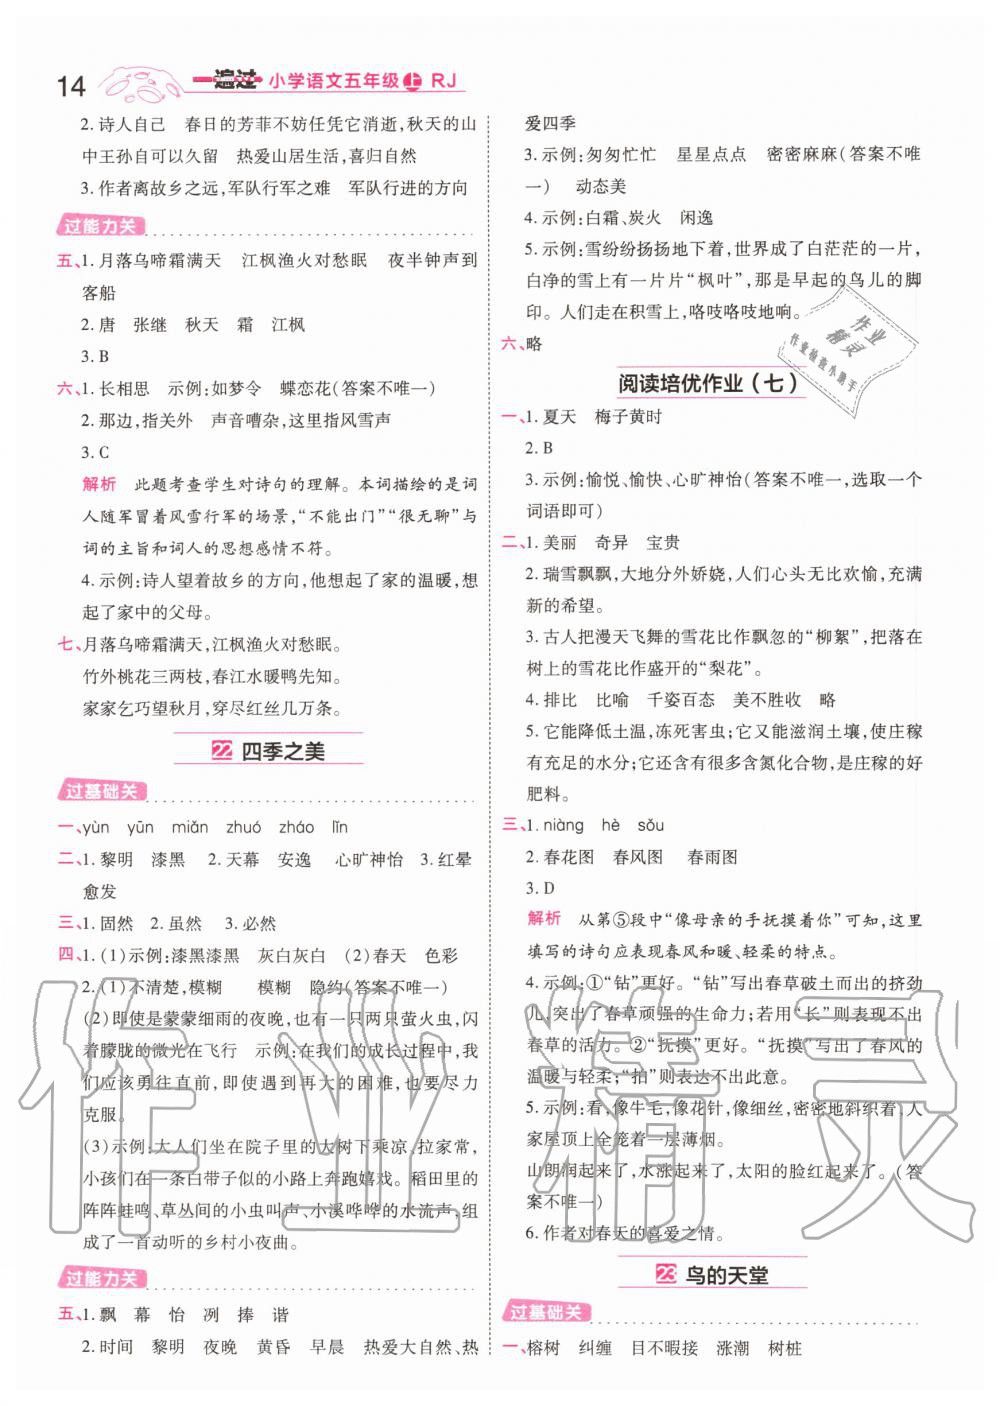 14 一遍过 小学语文五年级上 RJ
2. 诗人自己　春日的芳菲不妨任凭它消逝,秋天的山
中王孙自可以久留　热爱山居生活,喜归自然
3. 作者离故乡之远,军队行军之难　军队行进的方向
过能力关
五、1. 月落乌啼霜满天　江枫渔火对愁眠　夜半钟声到
客船
2. 唐　张继　秋天　霜　江枫
3. B
六、1. 长相思　示例:如梦令　蝶恋花(答案不唯一)
2. 那边,指关外　声音嘈杂,这里指风雪声
3. C
解析　此题考查学生对诗句的理解。本词描绘的是词
人随军冒着风雪行军的场景,“不能出门”“很无聊”与
词的主旨和词人的思想感情不符。
4. 示例:诗人望着故乡的方向,他想起了家的温暖,想
起了家中的父母。
七、月落乌啼霜满天,江枫渔火对愁眠。
竹外桃花三两枝,春江水暖鸭先知。
家家乞巧望秋月,穿尽红丝几万条。
22 四季之美
过基础关
一、yùn　yūn　miǎn　zhuó　zháo　lǐn
二、1. 黎明　漆黑　2. 天幕　安逸　心旷神怡　3. 红晕
愈发
三、1. 固然　2. 虽然　3. 必然
四、1. (1)示例:漆黑漆黑　灰白灰白　(2)春天　色彩
2. (1)不清楚,模糊　　模糊　隐约(答案不唯一)
(2)即使是蒙蒙细雨的夜晚,也有一只两只萤火虫,闪
着朦胧的微光在飞行　示例:在我们的成长过程中,我
们应该勇往直前,即使遇到再大的困难,也要尽力
克服。
(3)示例:大人们坐在院子里的大树下乘凉、拉家常,
小孩们在一条白带子似的小路上奔跑嬉戏。稻田里的
阵阵蛙鸣、草丛间的小虫叫声、小溪哗哗的水流声,组
成了一首动听的乡村小夜曲。
过能力关
五、1. 飘　幕　怡　冽　捧　谐
2. 时间　黎明　夜晚　黄昏　早晨　热爱大自然、热
爱四季
3. 示例:匆匆忙忙　星星点点　密密麻麻(答案不唯
一)　动态美
4. 示例:白霜、炭火　闲逸
5. 示例:雪纷纷扬扬地下着,世界成了白茫茫的一片,
白净的雪上有一片片“枫叶”,那是早起的鸟儿的脚
印。人们走在积雪上,咯吱咯吱地响。
六、略
阅读培优作业（七）
一、1. 夏天　梅子黄时
2. B
3. 示例:愉悦、愉快、心旷神怡(答案不唯一,选取一个
词语即可)
二、1. 美丽　奇异　宝贵
2. 瑞雪飘飘,大地分外娇娆,人们心头无比欢愉,充满
新的希望。
3. 古人把漫天飞舞的雪花比作飘忽的“柳絮”,把落在
树上的雪花比作盛开的“梨花”。
4. 排比　比喻　千姿百态　美不胜收　略
5. 它能降低土温,冻死害虫;它又能滋润土壤,使庄稼
有充足的水分;它还具有很多含氮化合物,是庄稼的好
肥料。
三、1. niàng　hè　sǒu
2. 春花图　春风图　春雨图
3. D
解析　从第⑤段中“像母亲的手抚摸着你”可知,这里
填写的诗句应表现春风和暖、轻柔的特点。
4. 示例:①“钻”更好。“钻”写出春草破土而出的挤劲
儿,突出了春草顽强的生命力;若用“长”则表现不出
春草的活力。②“抚摸”更好。“抚摸”写出了春风的
温暖与轻柔;“拍”则表达不出此意。
5. 示例:看,像牛毛,像花针,像细丝,密密地斜织着,人
家屋顶上全笼着一层薄烟。
山朗润起来了,水涨起来了,太阳的脸红起来了。(答
案不唯一)
6. 作者对春天的喜爱之情。
23 鸟的天堂
过基础关
一、榕树　纠缠　目不暇接　涨潮　树桩
作业精灵
作业
精灵
作业检查小助手